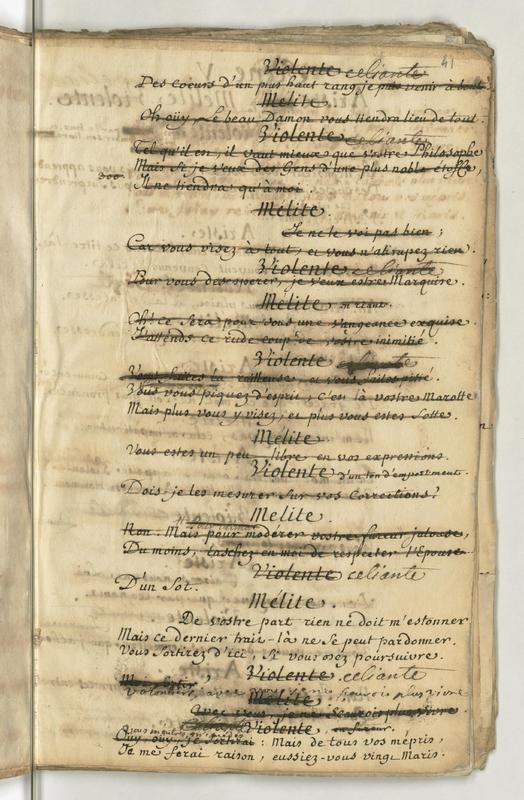 41
Violente celiante
Des coeurs d'un plus haut rang, je puis venir à bout
Mélite.
Oh ouÿ, Le beau Damon vous tiendra lieu de tout.
Violente celiante
Tel qu'il est, il vaut mieux que vostre Philosophe
Mais si je veux des Gens d'une plus noble étoffe,
300 Il ne tiendra qu'à moi.
Mélite.
Je ne le voi pas bien ;
Car vous visez à tout, et vous n'atrapez rien.
Violente celiante
Pour vous desesperer, je veux estre Marquise.
Mélite en riant.
Oh! ce sera pour vous une vangeance exquise.
J'attends ce rude coup de vostre inimitié.
Violente celiante
Vous faites la railleuse, et vous faites pitié.
Vous vous piquez d'esprit, c'est là vostre Marotte
Mais plus vous y visez, et plus vous estes Sotte.
Mélite.
Vous estes un peu libre en vos expressions.
Violente d'un ton d'emportement.
Dois-je les mesurer sur vos Corrections?
Mélite.
Non. Mais pour moderer vostre fureur jalouse,
Du moins, taschez en moi de respecter l'Epouse
Violente celiante
D'un Sot.
Mélite.
De vostre part rien ne doit m'estonner
Mais ce dernier trait-là ne se peut pardonner.
Vous sortirez d'ici, si vous osez poursuivre.
Violente celiante
avec plus vivre
Mélite
Avec vous, je ne sçaurois plus vivre.
Violente, en fureur.
Ouy, ouy, je sortirai : Mais de tous vos mépris,
Je me ferai raison, eussiez-vous vingt Maris.